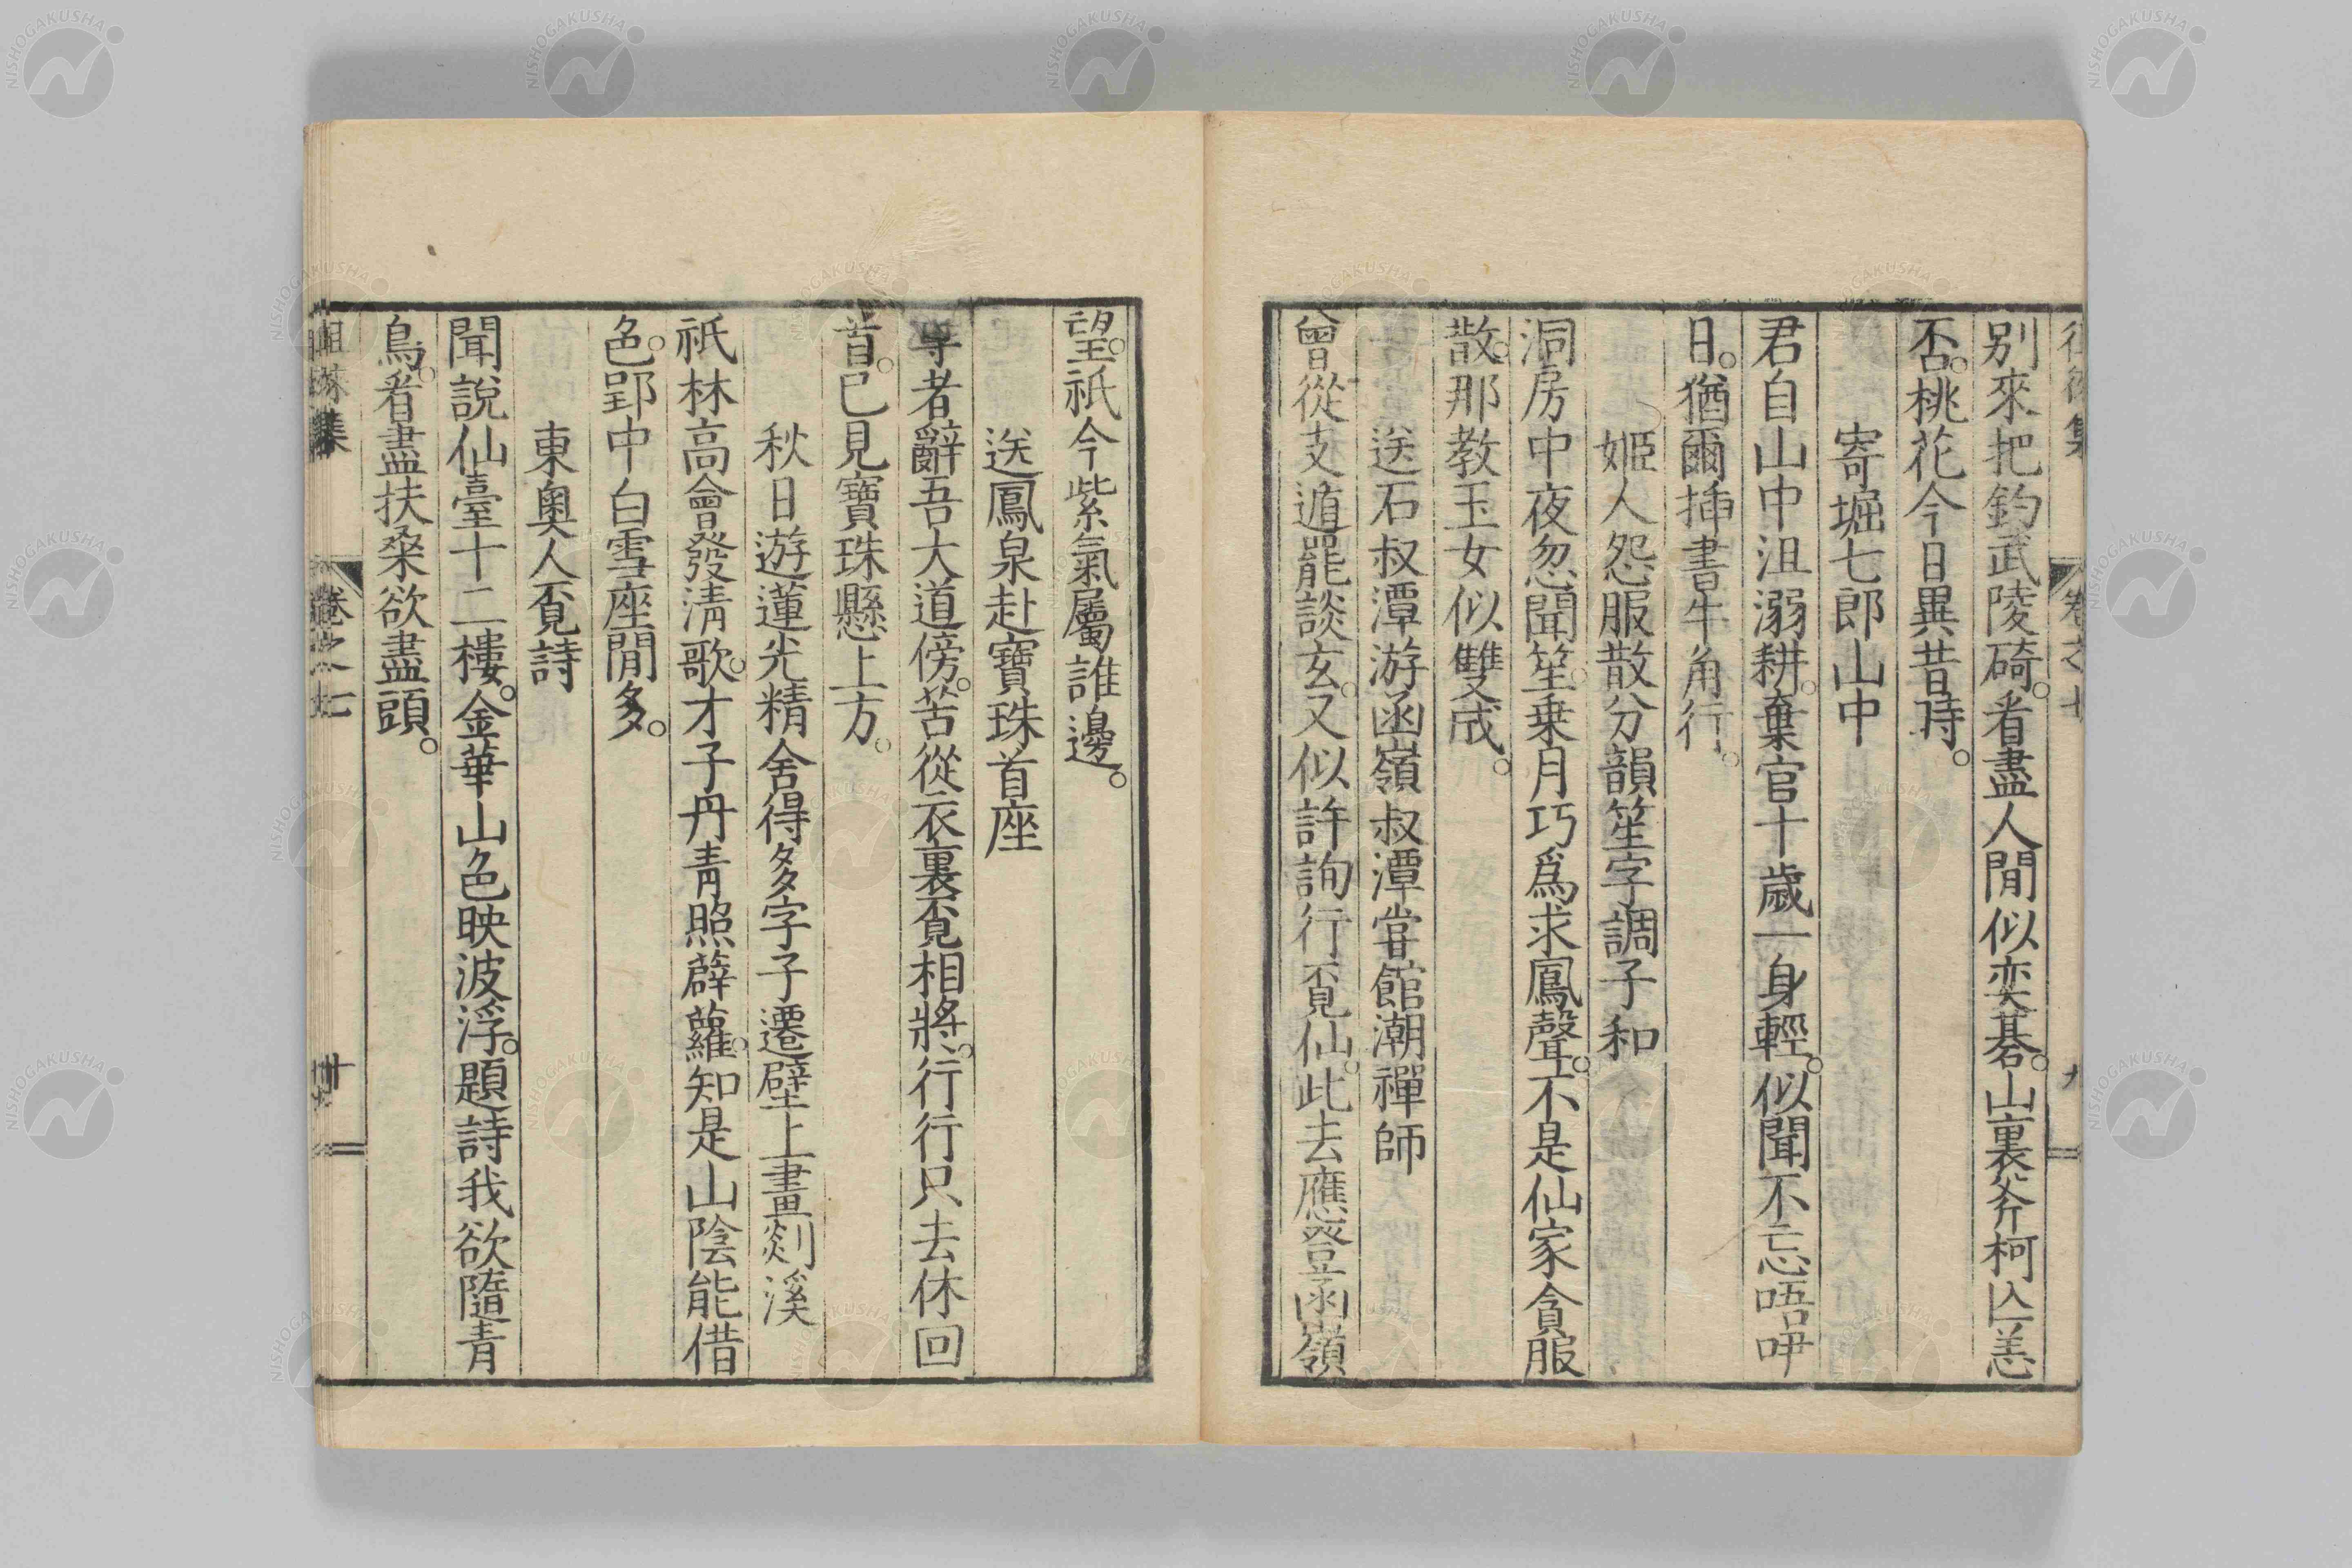 別來把釣武陵碕。看盡人閒似奕棊。山裏斧柯亾恙
否。桃花今日異昔時。
寄堀七郎山中
君自山中沮溺耕。棄官十歲一身輕。似聞不忘唔咿
日。猶爾挿書牛角行。
姬人怨服散分韻笙字調子和
洞房中夜忽聞笙。乗月巧爲求鳳聲。不是仙家貪服
散。那教玉女似雙成。
送石叔潭游函嶺叔潭甞館潮禪師
曾從支遁罷談玄。又似許詢行覔仙。此去應登函嶺
望。祇今紫氣屬誰邊。
送鳳泉赴寶珠首座
尊者辭吾大道傍。苦從衣裏覔相將。行行只去休回
首。已見寶珠懸上方。
秋日遊蓮光精舍得多字子遷壁上畫剡溪
祇林高會發淸歌。才子丹靑照薜蘿。知是山陰能借
色。郢中白雪座閒多。
東奧人覔詩
聞說仙臺十二樓。金華山色映波浮。題詩我欲隨青
鳥。看盡扶桒欲盡頭。
集
卷之七